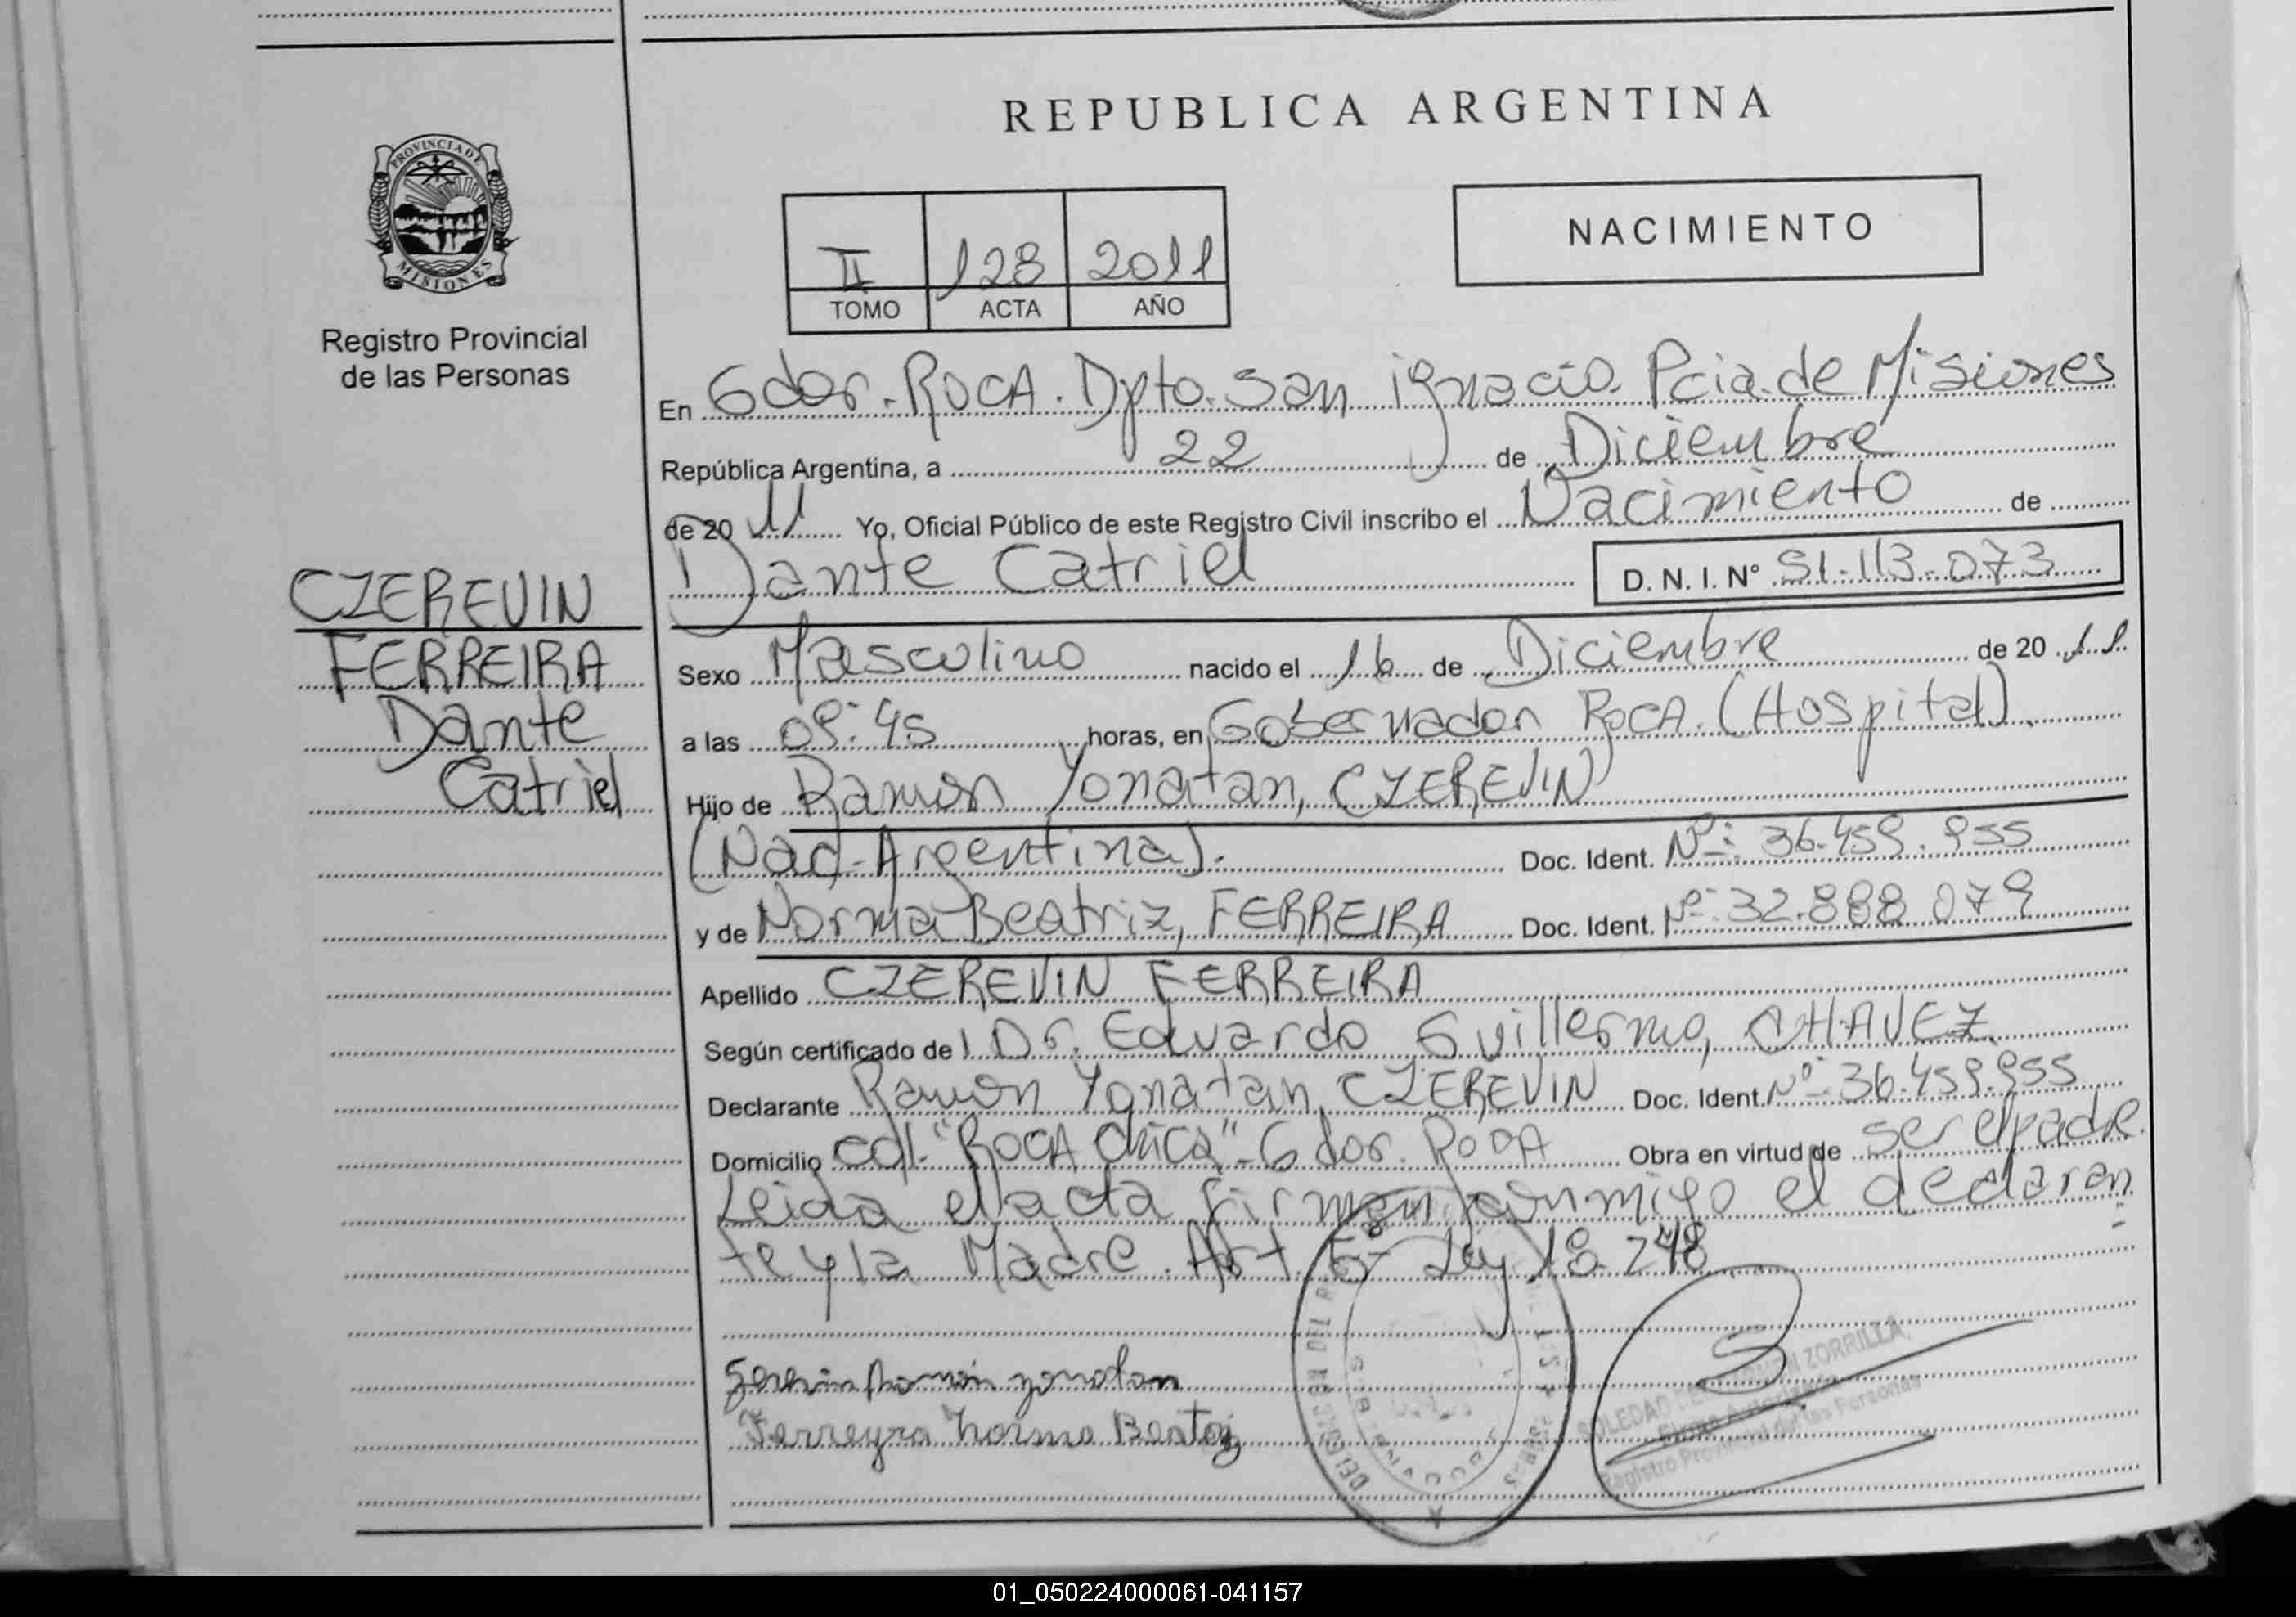 REPUBLICA ARGENTINA
PROVINCIA DE
MISIONES
Registro Provincial
de las Personas
II 128 2011
TOMO ACTA AÑO
NACIMIENTO
En Gdor. ROCA. Dpto. San ignacio. Pcia. de Misiones
República Argentina, a 22 de Diciembre
de 20 11 Yo, Oficial Público de este Registro Civil inscribo el Nacimiento de
Dante Catriel D. N. I. Nº 51-113-073
CZEREVIN
FERREIRA
Dante
Catriel
Sexo Masculino nacido el 16 de Diciembre de 20 11
a las 09:45 horas, en Gobernador ROCA. (Hospital).
Hijo de Ramon Yonatan, CZEREVIN
(Nac. Argentina). Doc. Ident. Nº: 36.459.955
y de Norma Beatriz, FERREIRA Doc. Ident. Nº: 32.888.079
Apellido CZEREVIN FERREIRA
Según certificado de l Dr. Eduardo Guillermo, CHAVEZ
Declarante Ramon Yonatan, CZEREVIN Doc. Ident. Nº 36.459.955
Domicilio Col. "ROCA Chica" - Gdor. ROCA Obra en virtud de ser el padre.
Leida el acta firman conmigo el declaran
te y la Madre. Art 5º Ley 18.248
Serevin Ramón yonatan
Ferreyra Norma Beatriz
SOLEDAD DEL CARMEN ZORRILLA
Firma Autorizada
Registro Provincial de las Personas
01_050224000061-041157